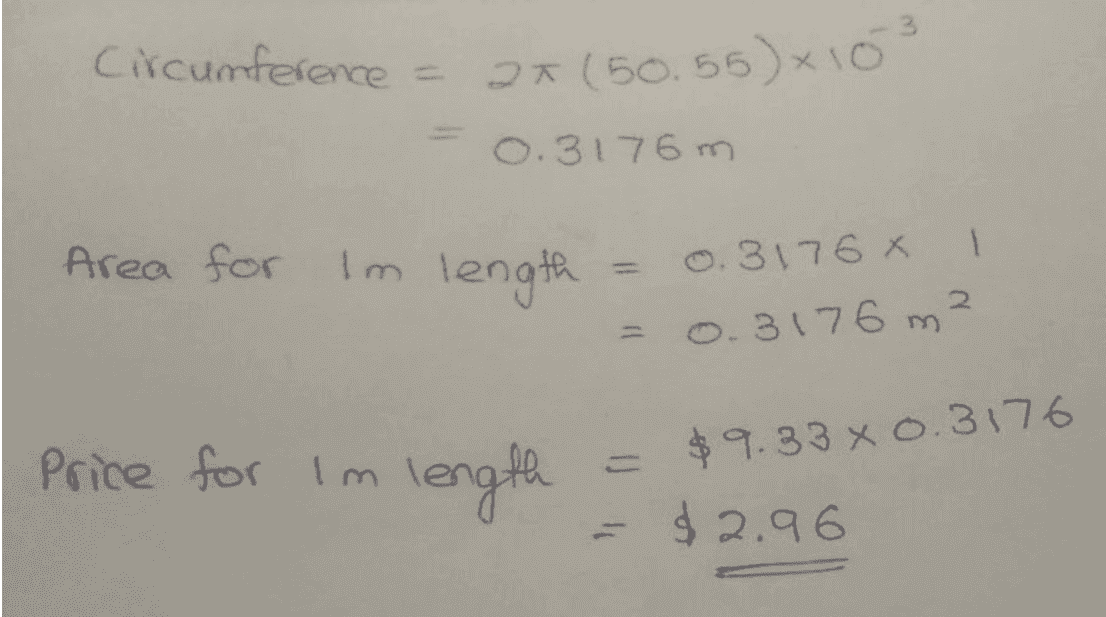 Circumference = 2π (50.55) × 10⁻³
= 0.3176 m
Area for 1m length = 0.3176 × 1
= 0.3176 m²
Price for 1m length = $9.33 × 0.3176
= $2.96